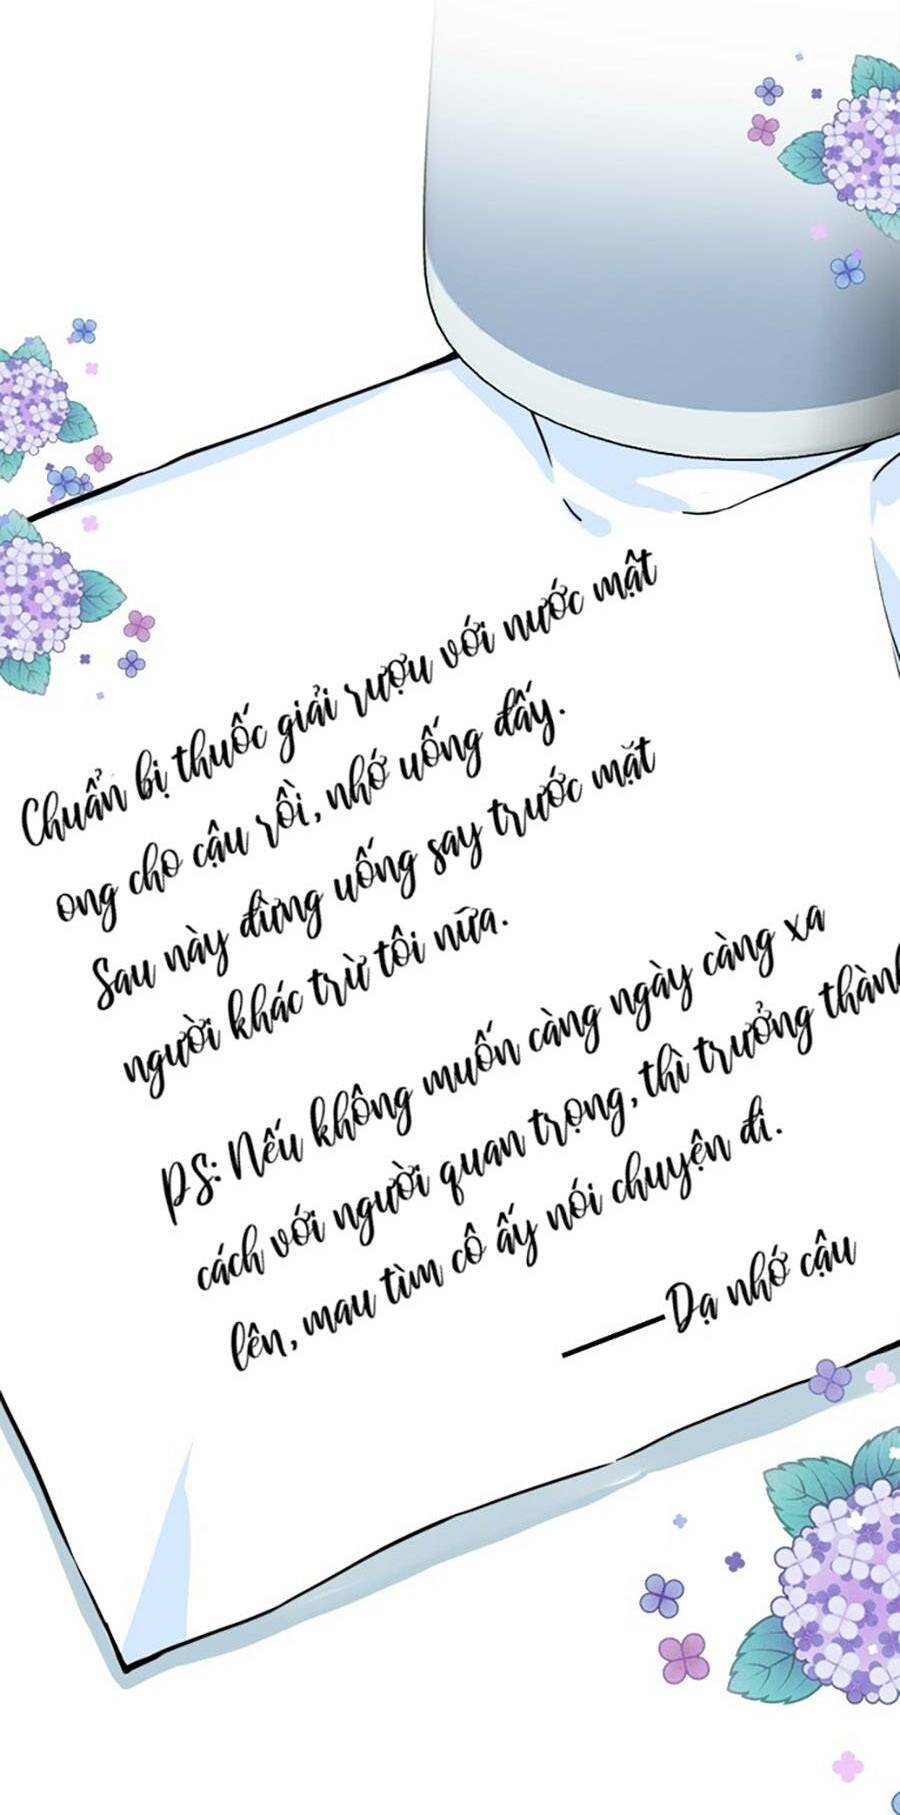 Chuẩn bị thuốc giải rượu với nước mật
ong cho cậu rồi, nhớ uống đấy.
Sau này đừng uống say trước mặt
người khác trừ tôi nữa.
PS: Nếu không muốn càng ngày càng xa
cách với người quan trọng, thì trưởng thành
lên, mau tìm cô ấy nói chuyện đi.
——Dạ nhớ cậu